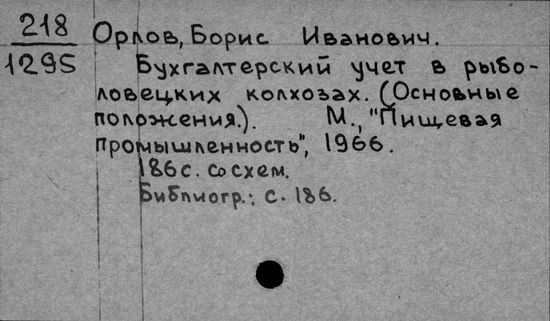 218
1295
Орлов, Борис Иванович.
Бухгалтерский учет в рыбо-
ловецких колхозах. (Основные
положения.). М., "Пищевая
промышленность", 1966.
186 с. со схем.
Библиогр.: с. 186.